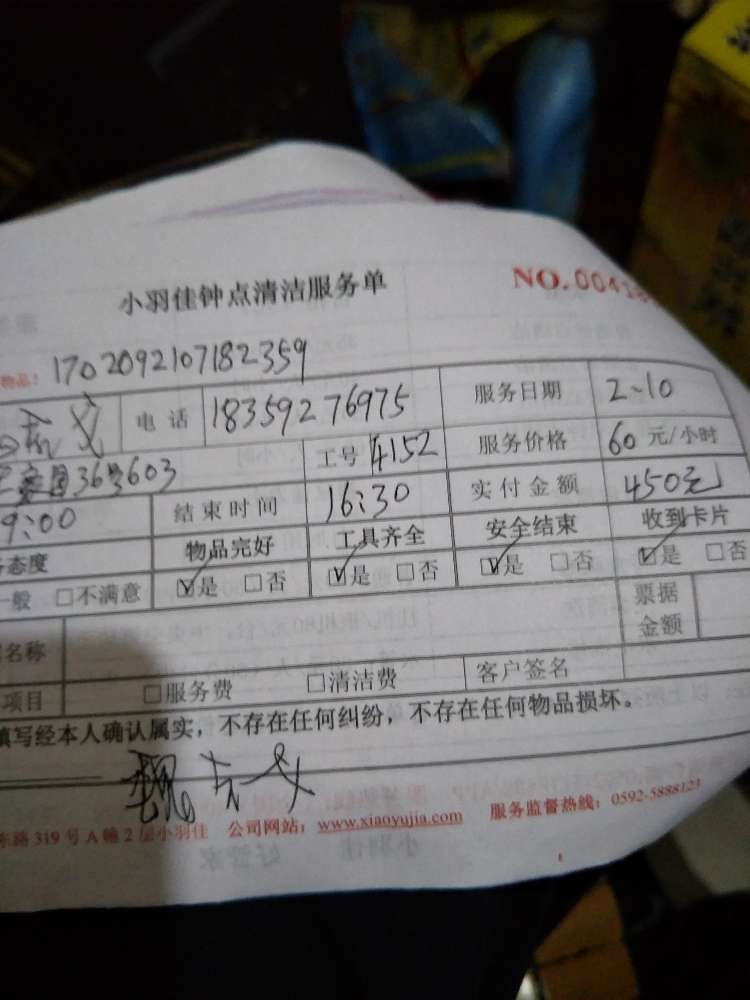 小羽佳钟点清洁服务单 NO. 0041
物品: 1702092107182359
电话 18359276975 服务日期 2-10
36号603 工号 4152 服务价格 60元/小时
9:00 结束时间 16:30 实付金额 450元
态度 物品完好 工具齐全 安全结束 收到卡片
一般 □不满意 ☑是 □否 ☑是 □否 ☑是 □否 ☑是 □否
名称 票据金额
项目 □服务费 □清洁费 客户签名
填写经本人确认属实，不存在任何纠纷，不存在任何物品损坏。
东路319号A幢2层小羽佳 公司网站：www.xiaoyujia.com 服务监督热线：0592-5888123